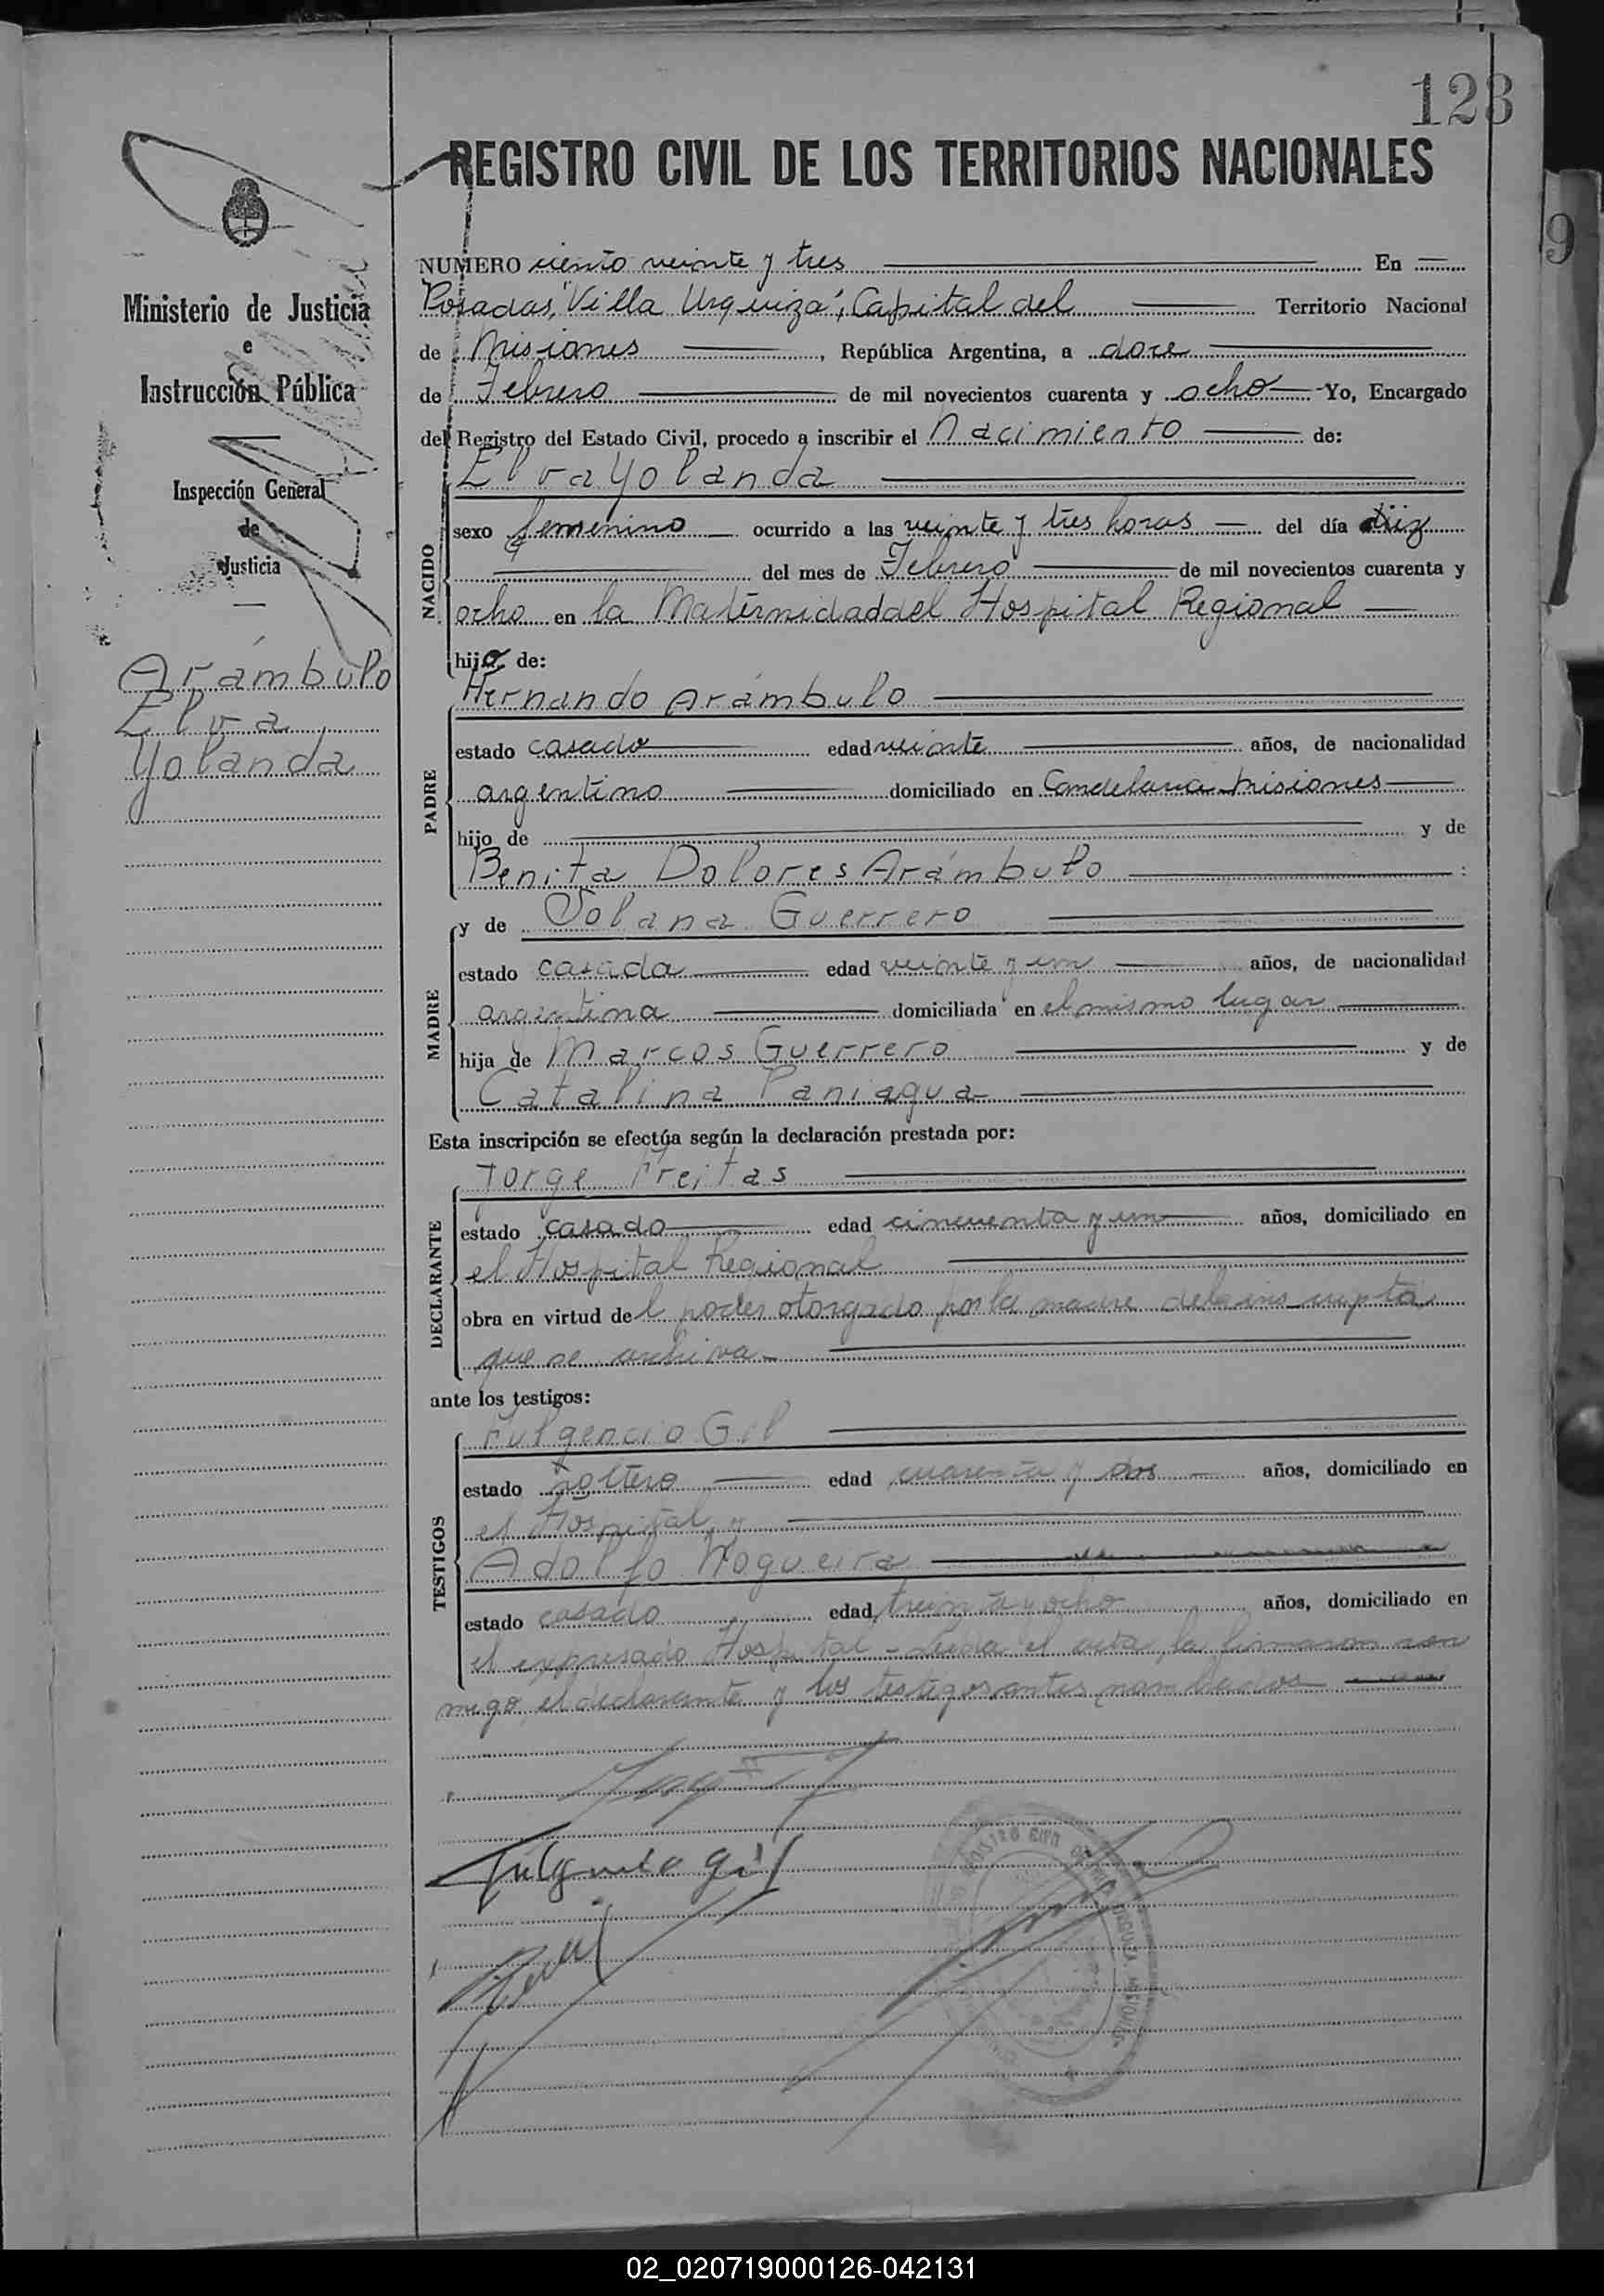 123
REGISTRO CIVIL DE LOS TERRITORIOS NACIONALES
Ministerio de Justicia
e
Instrucción Pública
Inspección General
de
Justicia
Arámbulo
Elva
Yolanda
NUMERO ciento veinte y tres En
Posadas, "Villa Urquiza", Capital del Territorio Nacional
de Misiones, República Argentina, a doce
de Febrero de mil novecientos cuarenta y ocho Yo, Encargado
del Registro del Estado Civil, procedo a inscribir el Nacimiento de:
Elva Yolanda
NACIDO
sexo femenino ocurrido a las veinte y tres horas del día diez
del mes de Febrero de mil novecientos cuarenta y
ocho en la Maternidad del Hospital Regional
hija de:
Hernando Arámbulo
PADRE
estado casado edad veinte años, de nacionalidad
argentino domiciliado en Candelaria Misiones
hijo de y de
Benita Dolores Arámbulo :
y de Solana Guerrero
MADRE
estado casada edad veinte y un años, de nacionalidad
argentina domiciliada en el mismo lugar
hija de Marcos Guerrero y de
Catalina Paniagua
Esta inscripción se efectúa según la declaración prestada por:
Jorge Freitas
DECLARANTE
estado casado edad cincuenta y un años, domiciliado en
el Hospital Regional
obra en virtud del poder otorgado por la madre de la inscripta
que se archiva
ante los testigos:
Fulgencio Gil
TESTIGOS
estado soltero edad cuarenta y dos años, domiciliado en
el Hospital y
Adolfo Nogueira
estado casado edad treinta y ocho años, domiciliado en
el expresado Hospital - Leida el acta, la firmaron con
migo, el declarante y los testigos antes nombrados
Fulgencio Gil
9
02_020719000126-042131